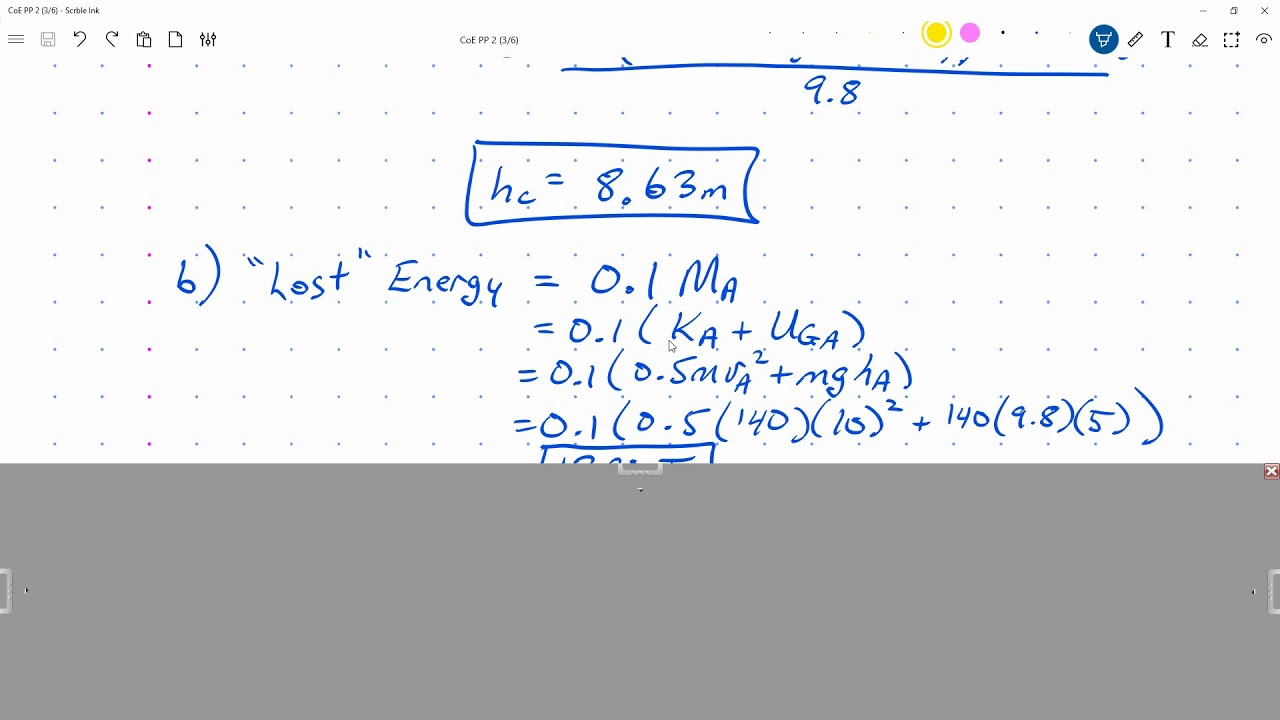 CoE PP 2 (3/6) - Scrble Ink
CoE PP 2 (3/6)
T
9.8
hc = 8.63m
b) "Lost" Energy = 0.1 MA
= 0.1 (KA + UGA)
= 0.1 (0.5mvA² + mghA)
= 0.1 (0.5(140)(10)² + 140(9.8)(5))